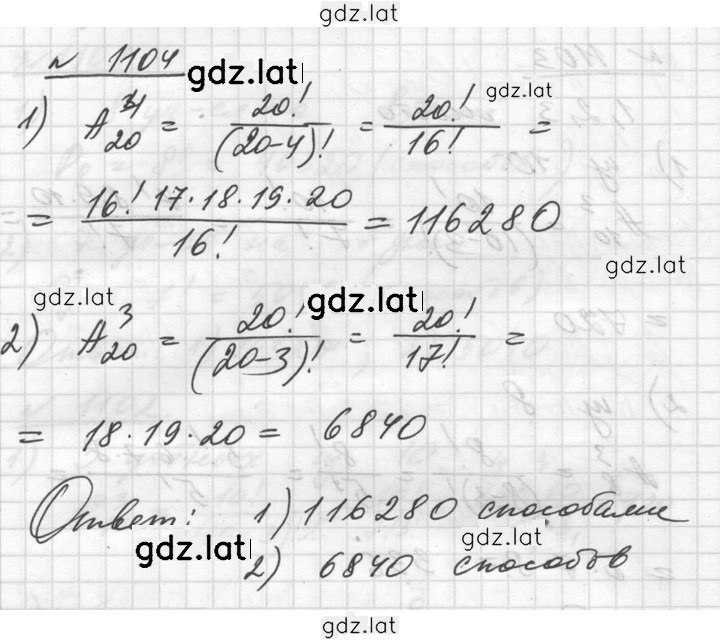 gdz.lat
№ 1104
gdz.lat
gdz.lat
1) A₂₀⁴ = 20!/(20-4)! = 20!/16! =
= 16!·17·18·19·20/16! = 116280
gdz.lat
gdz.lat
gdz.lat
2) A₂₀³ = 20!/(20-3)! = 20!/17! =
= 18·19·20 = 6840
Ответ: 1) 116280 способами
gdz.lat
gdz.lat
2) 6840 способов
gdz.lat